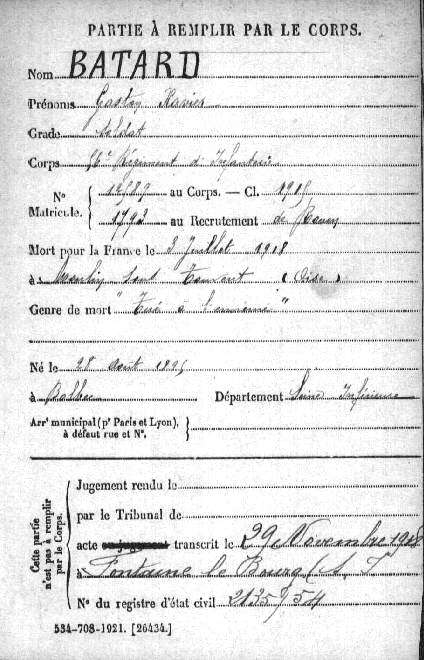 PARTIE À REMPLIR PAR LE CORPS.
Nom BATARD
Prénoms Gaston Xavier
Grade Soldat
Corps Régiment d'Infanterie
N° Matricule. { 12589 au Corps. — Cl. 1915
1792 au Recrutement de Rouen
Mort pour la France le 3 Juillet 1918
à Moulin sous Touvent (Oise)
Genre de mort "Tué à l'ennemi"
Né le 28 Août 1895
à Bolbec Département Seine Inférieure
Arr^t municipal (p^r Paris et Lyon), à défaut rue et N°. }
Cette partie n'est pas à remplir par le Corps.
Jugement rendu le
par le Tribunal de
acte ou jugement transcrit le 29 Novembre 1918
à Fontaine le Bourg (S. I
N° du registre d'état civil 2135/54
534-708-1921. [26434.]